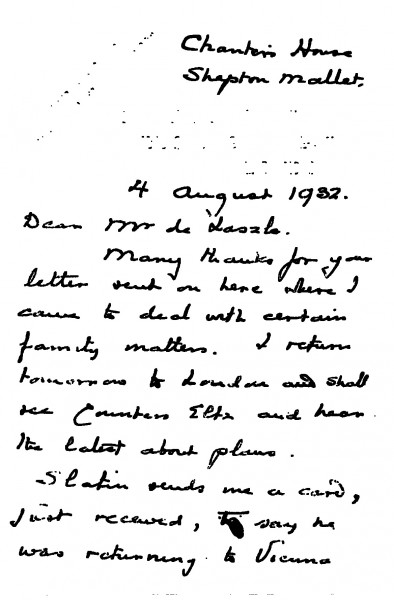 Chanters House
Shepton Mallet.
4 August 1932.
Dear Mr de Laszlo.
Many thanks for your
letter sent on here where I
came to deal with certain
family matters. I return
tomorrow to London and shall
see Countess Eltz and hear
the latest about plans.
Slatin sends me a card,
just received, to say he
was returning to Vienna